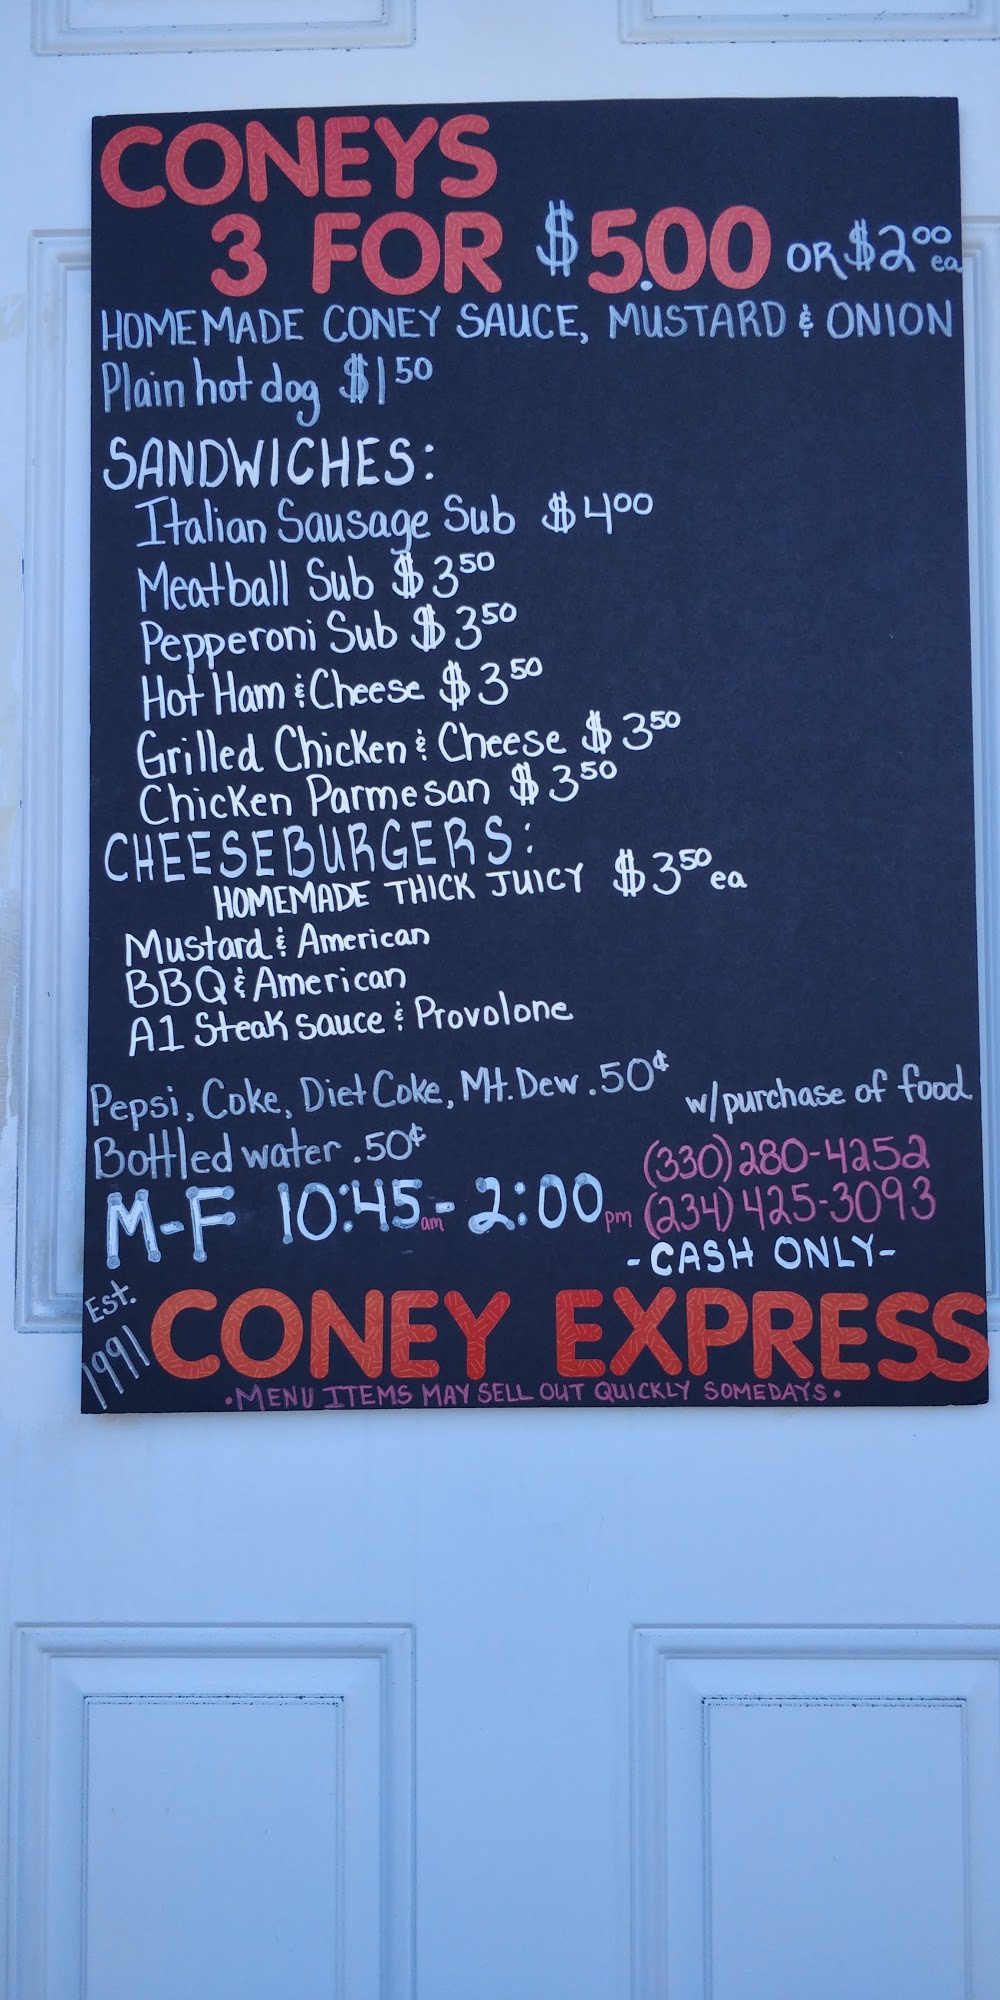 CONEYS
3 FOR $5.00 OR $2.00 ea
HOMEMADE CONEY SAUCE, MUSTARD & ONION
Plain hot dog $1.50
SANDWICHES:
Italian Sausage Sub $4.00
Meatball Sub $3.50
Pepperoni Sub $3.50
Hot Ham & Cheese $3.50
Grilled Chicken & Cheese $3.50
Chicken Parmesan $3.50
CHEESEBURGERS:
HOMEMADE THICK JUICY $3.50 ea
Mustard & American
BBQ & American
A1 Steak sauce & Provolone
Pepsi, Coke, Diet Coke, Mt. Dew .50¢
w/purchase of food
Bottled water .50¢
(330) 280-4252
M-F 10:45am - 2:00pm
(234) 425-3093
-CASH ONLY-
Est. 1991
CONEY EXPRESS
•MENU ITEMS MAY SELL OUT QUICKLY SOMEDAYS•